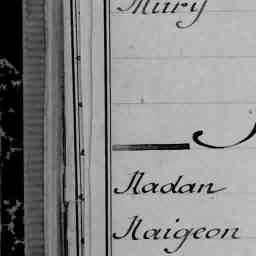 Mury
Nadan
Naigeon